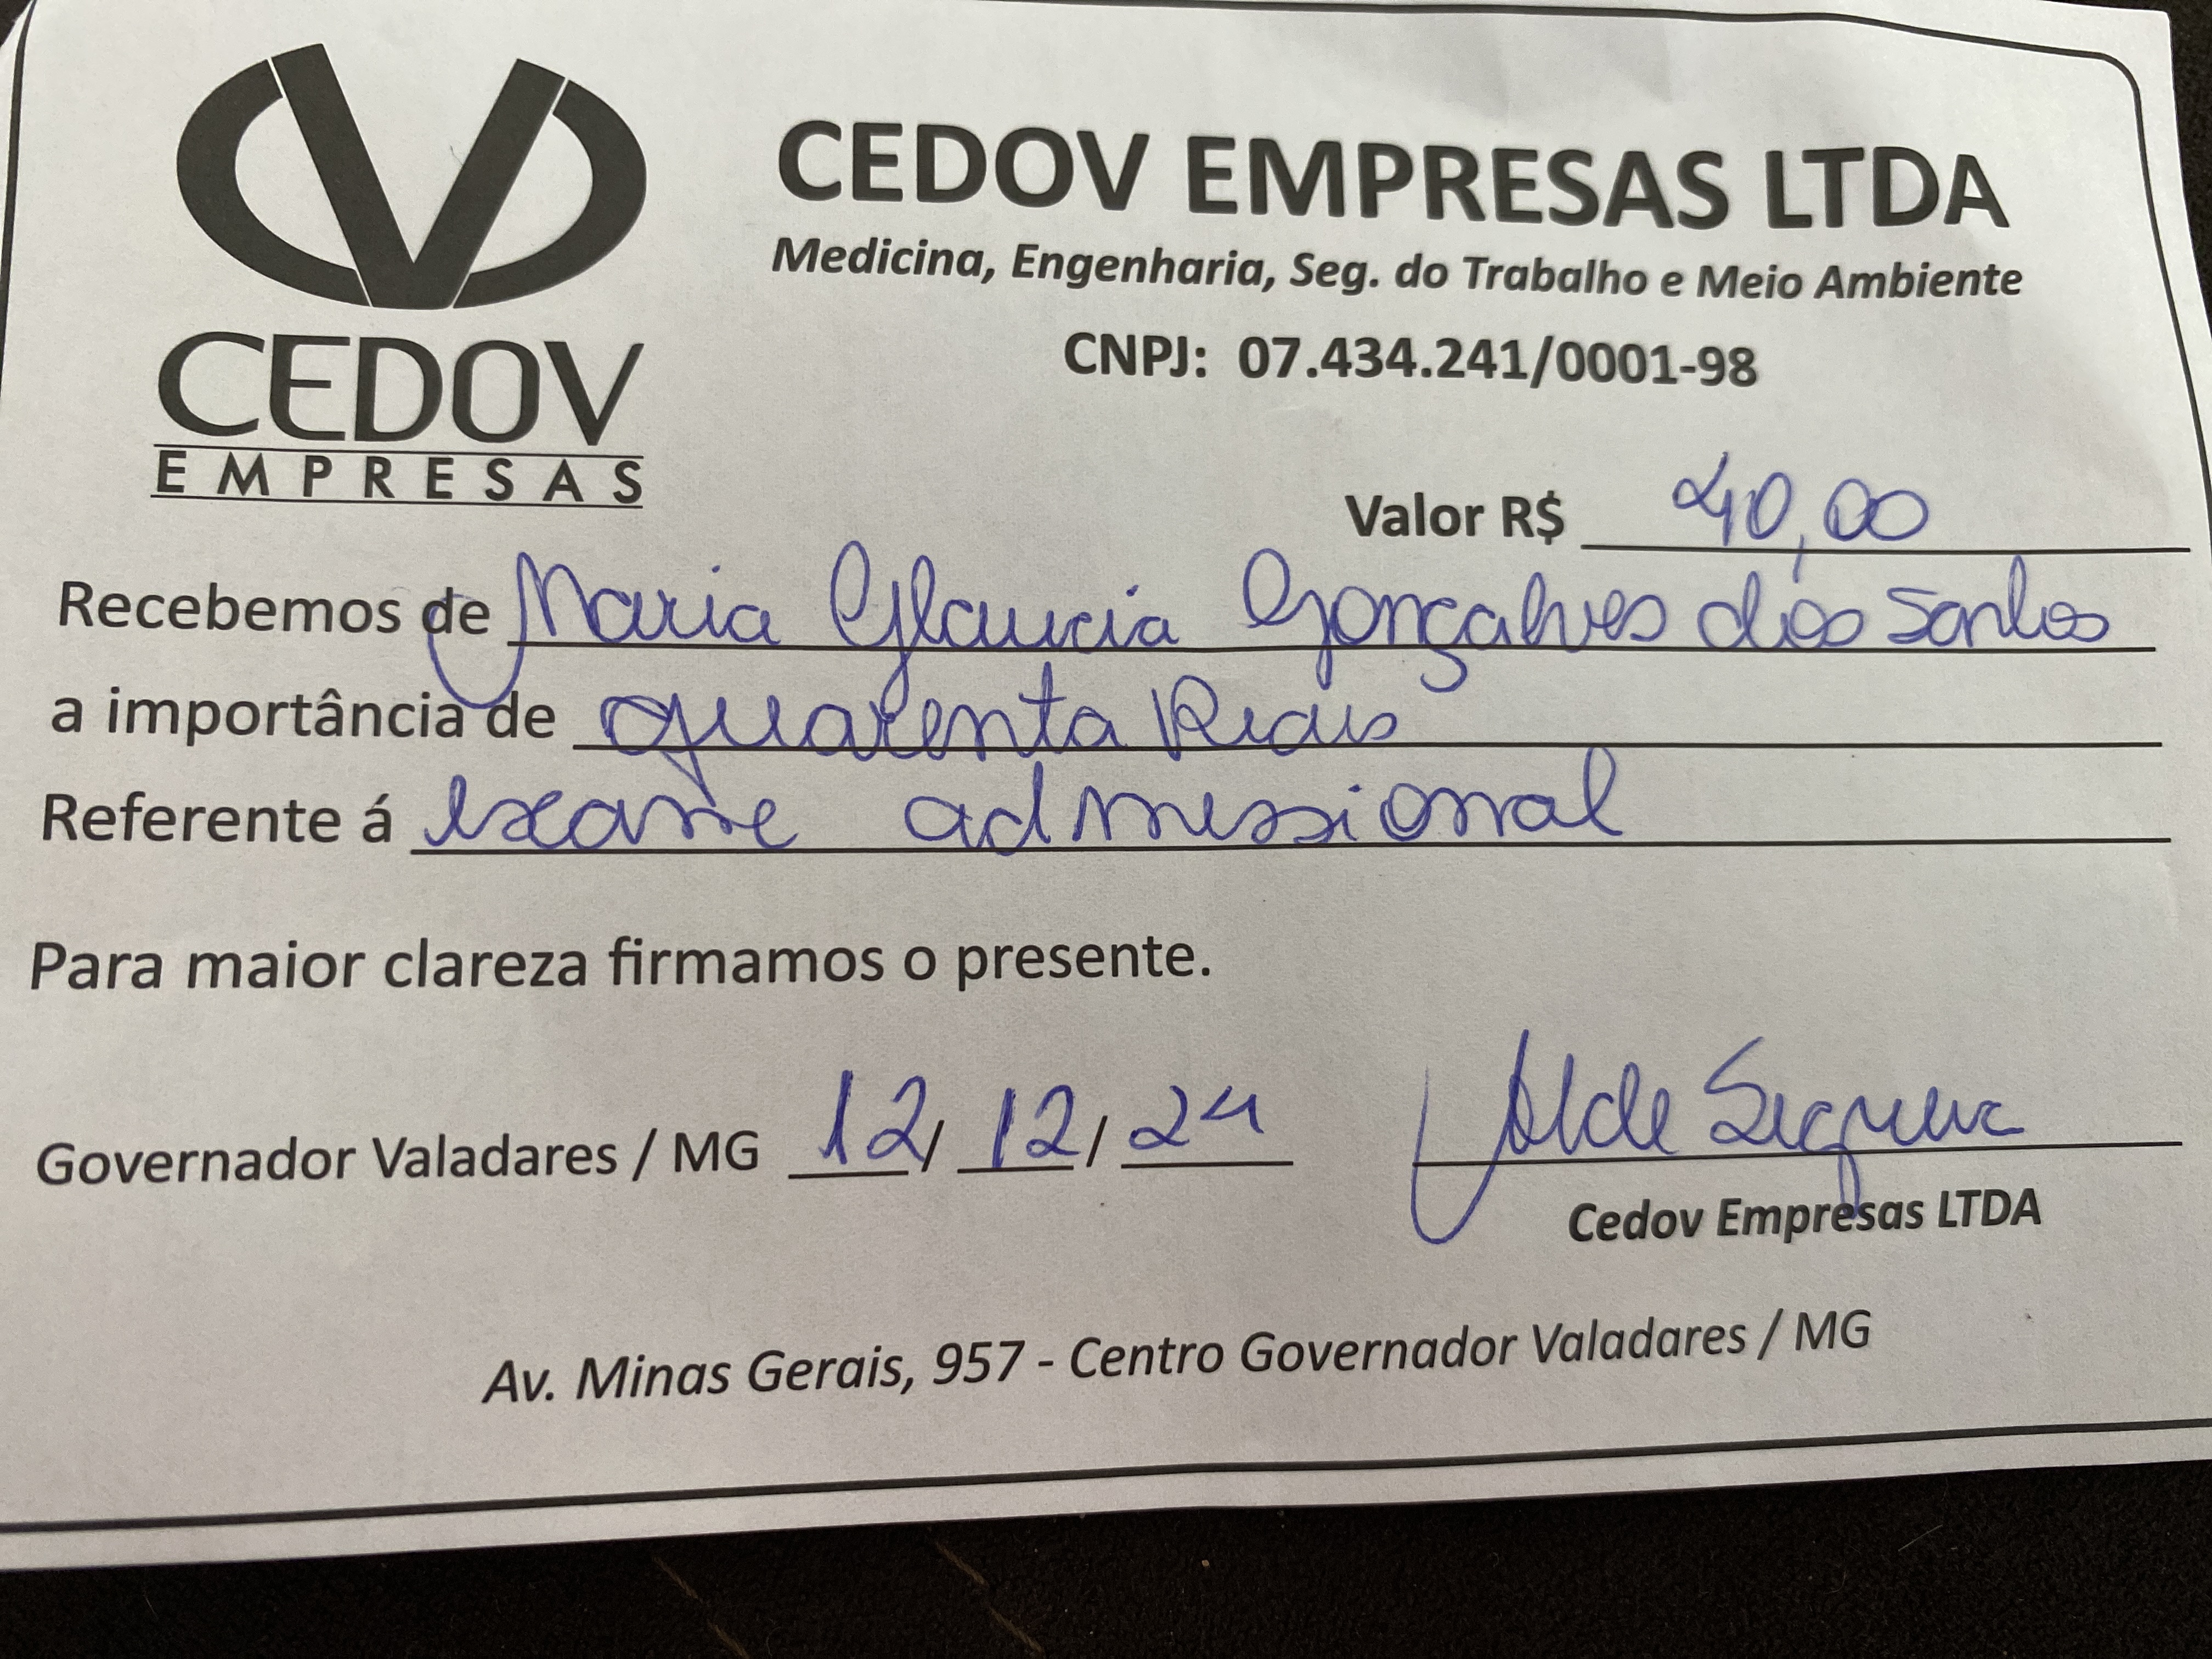 CEDOV EMPRESAS LTDA
Medicina, Engenharia, Seg. do Trabalho e Meio Ambiente
CNPJ: 07.434.241/0001-98
CEDOV
EMPRESAS
Valor R$ 40,00
Recebemos de Maria Glaucia Gonçalves dos Santos
a importância de Quarenta Reais
Referente á Exame admissional
Para maior clareza firmamos o presente.
Governador Valadares / MG 12/12/24
Cedov Empresas LTDA
Av. Minas Gerais, 957 - Centro Governador Valadares / MG